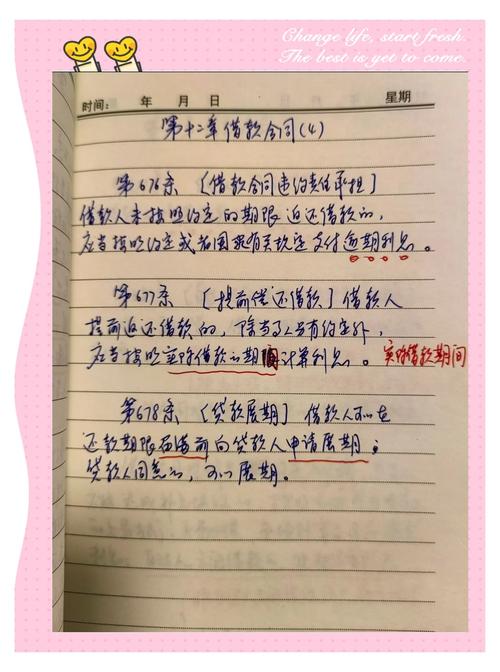 Change life, start fresh.
The best is yet to come.
时间： 年 月 日 星期
第十二章借款合同(4)
第676条 [借款合同违约责任承担]
借款人未按照约定的期限返还借款的,
应当按照约定或者国家有关规定支付逾期利息。
第677条 [提前偿还借款] 借款人
提前返还借款的,除当事人另有约定外,
应当按照实际借款的期间计算利息。 实际借款期间
第678条 [贷款展期] 借款人可以在
还款期限届满前向贷款人申请展期;
贷款人同意的,可以展期。